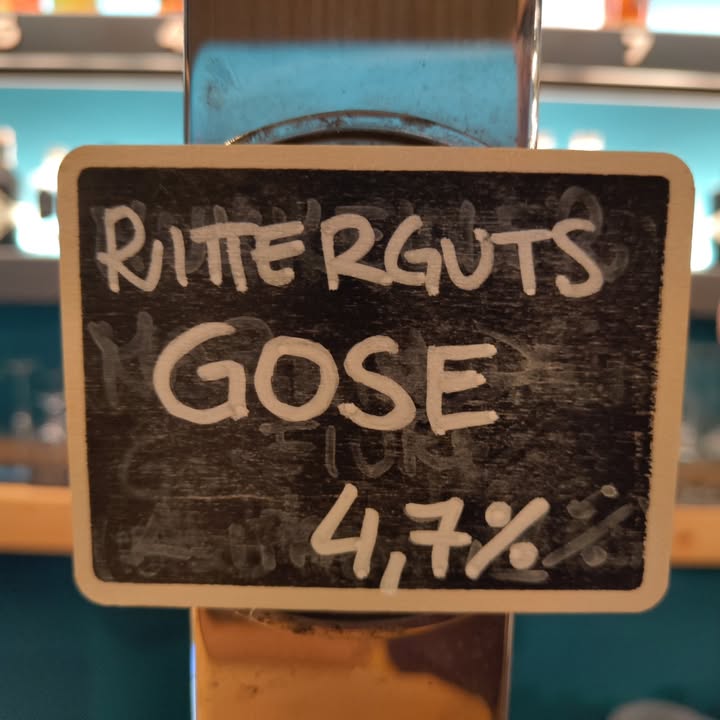 RITTERGUTS
GOSE
4,7%